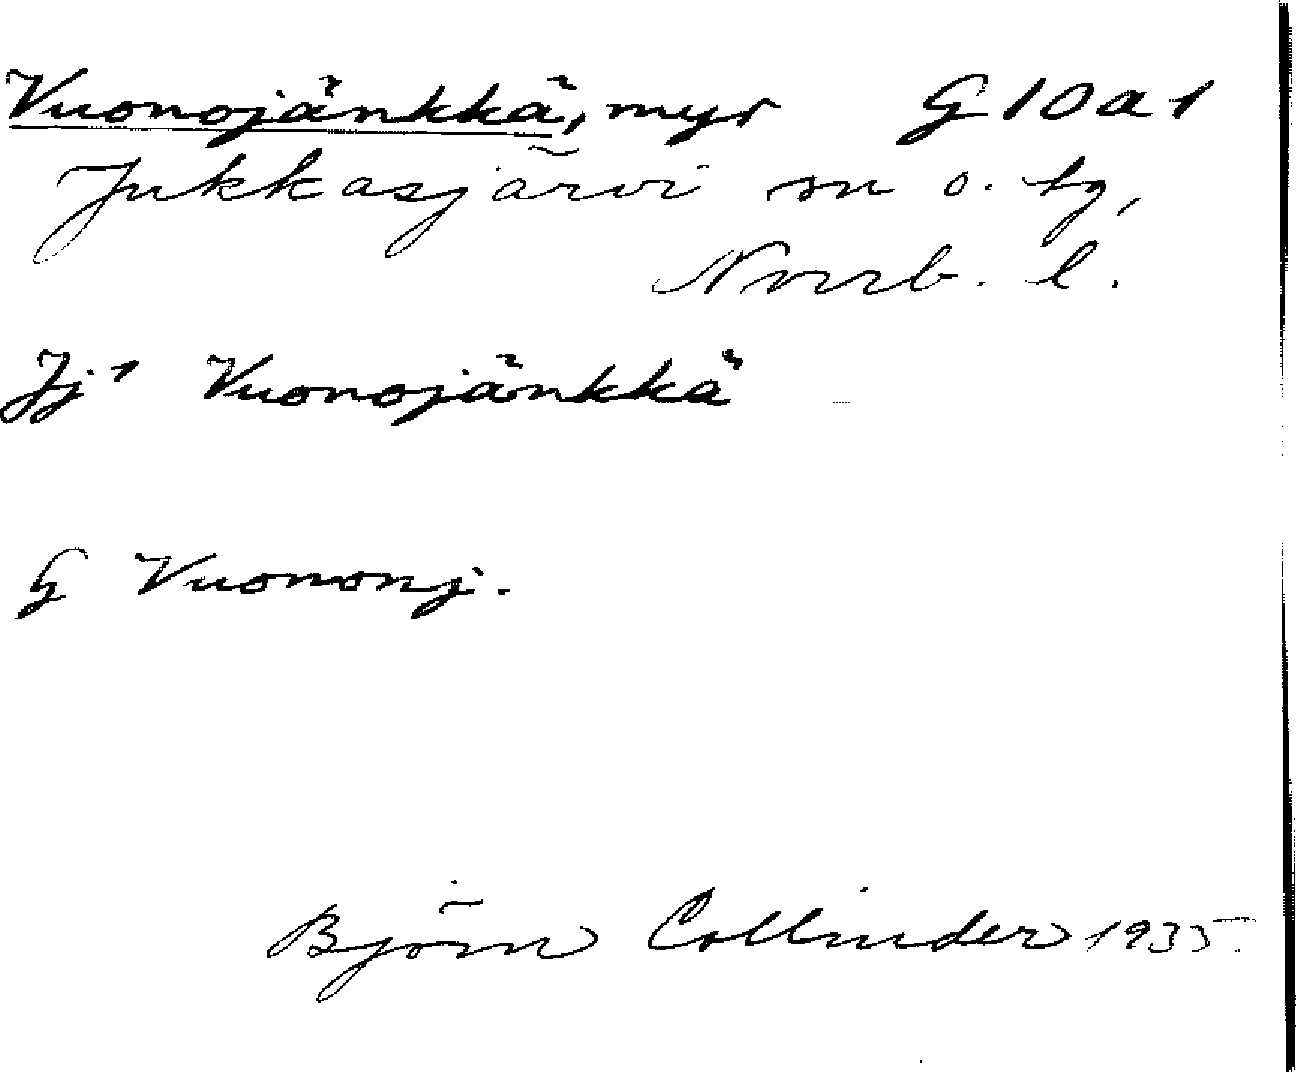 Vuonojänkkä, myr G 10 a 1
Jukkasjärvi sn o. tg,
Norrb. l.
Jj¹ Vuonojänkkä
G Vuononj.
Björn Collinder 1935